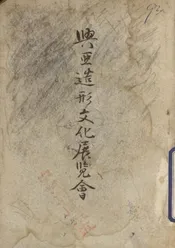 興亜造形文化展覧會